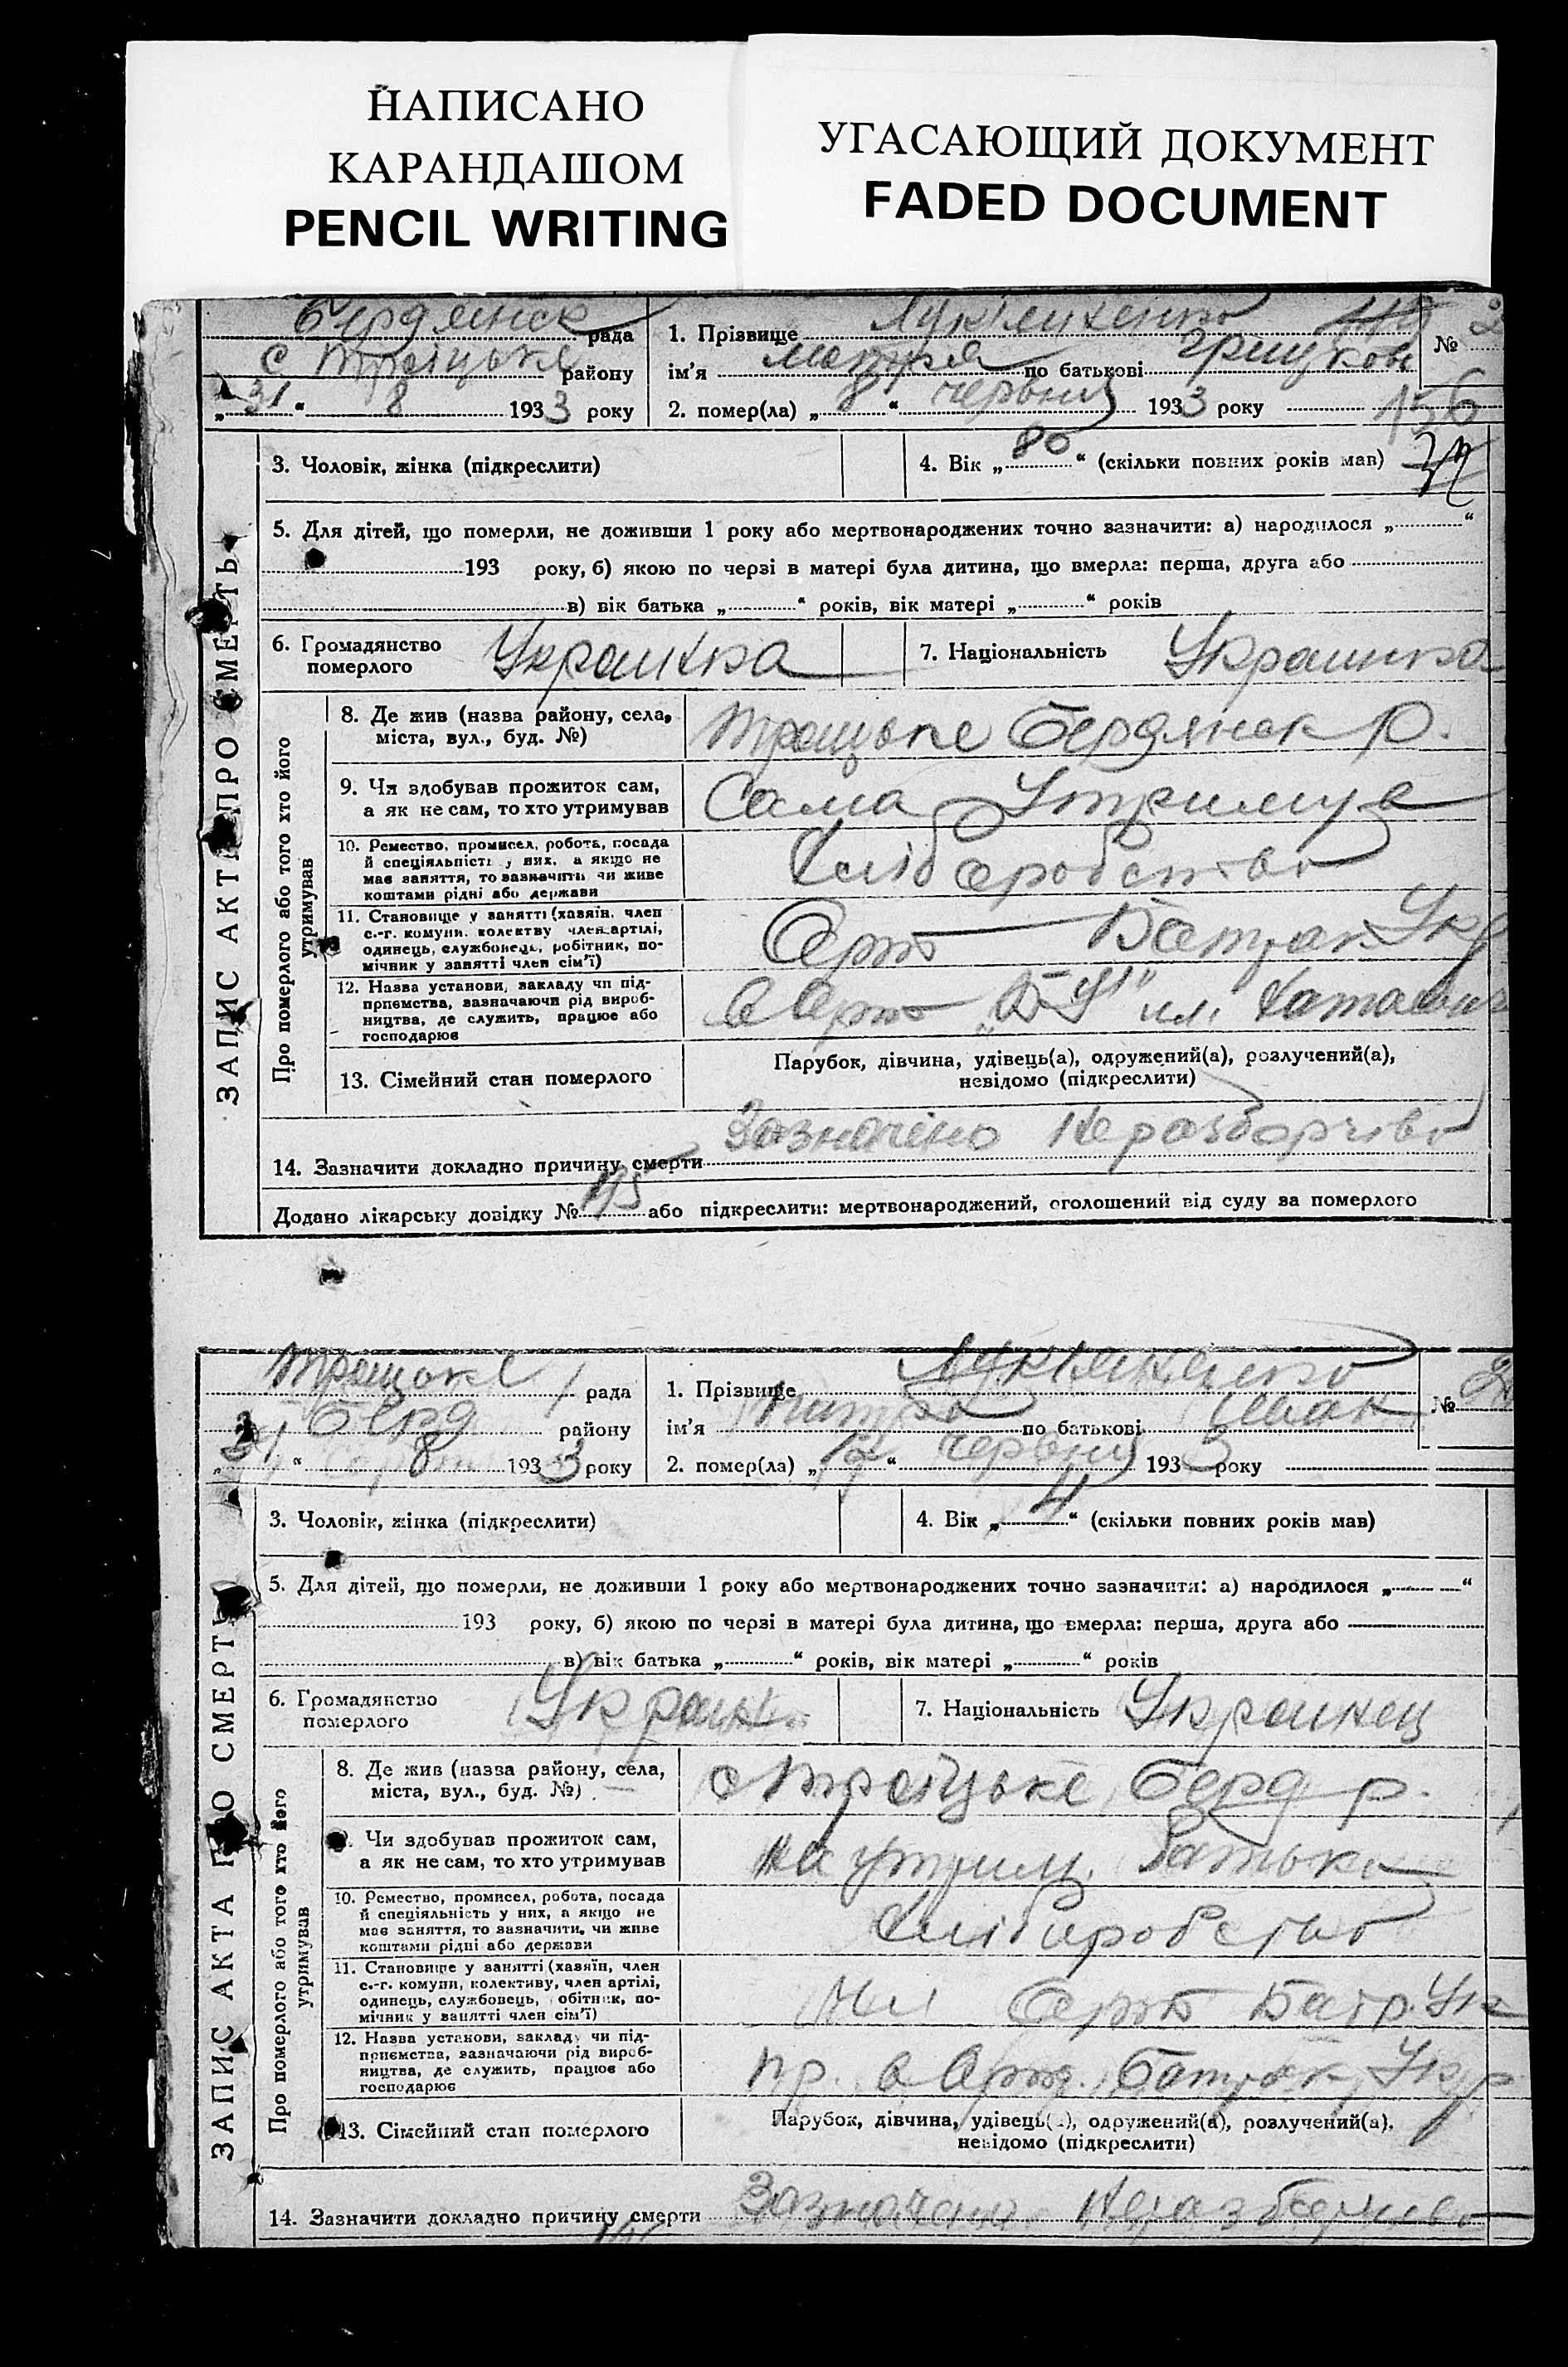 НАПИСАНО
КАРАНДАШОМ
PENCIL WRITING
УГАСАЮЩИЙ ДОКУМЕНТ
FADED DOCUMENT
Бердянск рада
с Троіцьке району
„ 31 “ 8 1933 року
1. Прізвище
ім'я по батькові
№
2. помер(ла) „ 8 “ червня 1933 року
156
3. Чоловік, жінка (підкреслити)
4. Вік „ 80 “ (скільки повних років мав)
5. Для дітей, що померли, не доживши 1 року або мертвонароджених точно зазначити: а) народилося „ “
193 року, б) якою по черзі в матері була дитина, що вмерла: перша, друга або
в) вік батька „ “ років, вік матері „ “ років
6. Громадянство
померлого
Украинка
7. Національність
Украинка
ЗАПИС АКТА ПРО СМЕРТЬ
Про померлого або того хто його
утримував
8. Де жив (назва району, села,
міста, вул., буд. №)
Троицьке Бердянск р.
9. Чи здобував прожиток сам,
а як не сам, то хто утримував
Сама
10. Ремество, промисел, робота, посада
й спеціяльність у них, а якщо не
має заняття, то зазначити чи живе
коштами рідні або держави
Хліборобство
11. Становище у занятті (хазяїн, член
с.-г. комуни, колективу член артілі,
одинець, службовець, робітник, по-
мічник у занятті член сім'ї)
Батрак Укр
12. Назва установи, закладу чи під-
приємства, зазначаючи рід вироб-
ництва, де служить, працює або
господарює
13. Сімейний стан померлого
Парубок, дівчина, удівець(а), одружений(а), розлучений(а),
невідомо (підкреслити)
14. Зазначити докладно причину смерти
Зазначено Неразборчіво
Додано лікарську довідку № або підкреслити: мертвонароджений, оголошений від суду за померлого
Троицьке рада
Берд району
„ 31 “ 8 1933 року
1. Прізвище
ім'я по батькові
№
2. помер(ла) „ “ червня 1933 року
3. Чоловік, жінка (підкреслити)
4. Вік „ 4 “ (скільки повних років мав)
5. Для дітей, що померли, не доживши 1 року або мертвонароджених точно зазначити: а) народилося „ “
193 року, б) якою по черзі в матері була дитина, що вмерла: перша, друга або
в) вік батька „ “ років, вік матері „ “ років
6. Громадянство
померлого
7. Національність
Украинец
ЗАПИС АКТА ПРО СМЕРТЬ
Про померлого або того хто його
утримував
8. Де жив (назва району, села,
міста, вул., буд. №)
с Троїцьке Берд р.
9. Чи здобував прожиток сам,
а як не сам, то хто утримував
на утрим. батька
10. Ремество, промисел, робота, посада
й спеціяльність у них, а якщо не
має заняття, то зазначити, чи живе
коштами рідні або держави
Хліборобство
11. Становище у занятті (хазяїн, член
с.-г. комуни, колективу, член артілі,
одинець, службовець, робітник, по-
мічник у занятті член сім'ї)
Батр. Ук
12. Назва установи, закладу чи під-
приємства, зазначаючи рід вироб-
ництва, де служить, працює або
господарює
Батрак Укр
13. Сімейний стан померлого
Парубок, дівчина, удівець(а), одружений(а), розлучений(а),
невідомо (підкреслити)
14. Зазначити докладно причину смерти
Зазначено